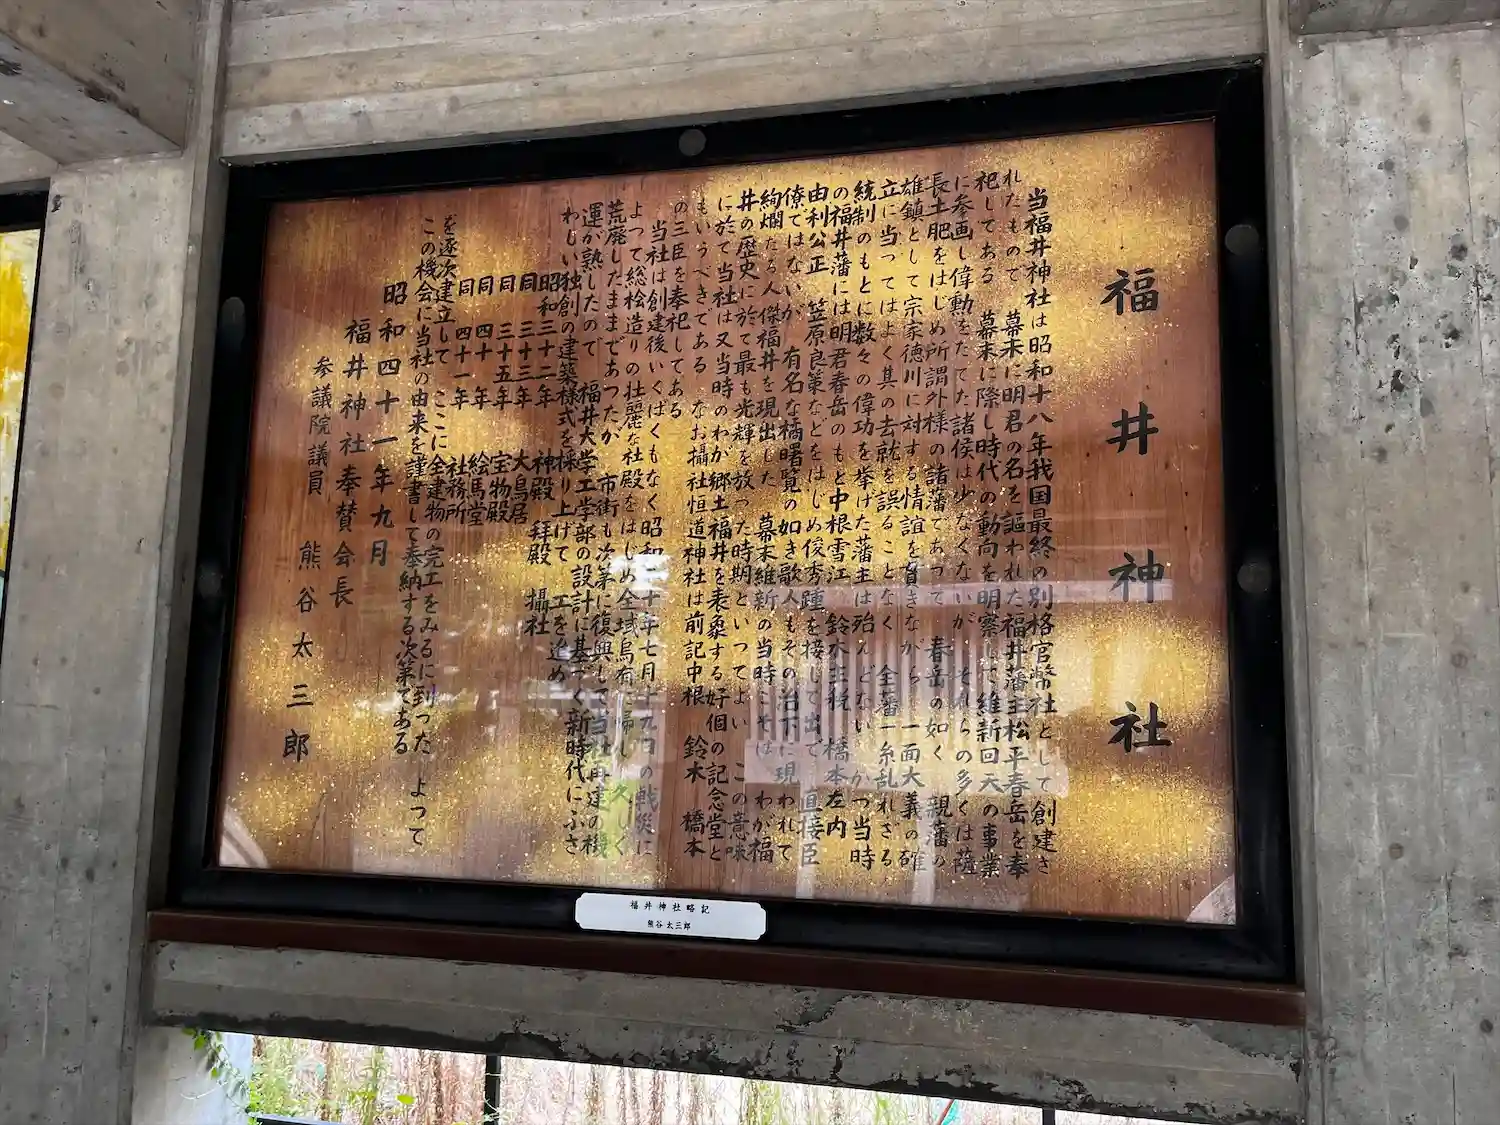 福井神社
当福井神社は昭和十八年我国最終の別格官幣社として創建さ
れたもので 幕末に明君の名を謳われた福井藩主松平春岳を奉
祀してある 幕末に際し時代の動向を明察して維新回天の事業
に参画し偉勲をたてた諸侯は少なくないが それらの多くは薩
長土肥をはじめ所謂外様の諸藩であって 春岳の如く 親藩の
雄鎮として宗家徳川に対する情誼を貫きながら 一面大義の確
立に当ってはよく其の去就を誤ることなく 全藩一糸乱れざる
統制のもとに数々の偉功を挙げた藩主は殆んどない かつ当時
の福井藩には明君春岳のもと中根雪江 鈴木主税 橋本左内
由利公正 笠原良策などをはじめ俊秀踵を接して出で 直接臣
僚ではないが 有名な橘曙覧の如き歌人もその治下に現われて
絢爛たる人傑福井を現出した 幕末維新の当時こそは わが福
井の歴史に於て最も光輝を放った時期といってよい この意味
に於て当社は又当時のわが郷土福井を表象する好個の記念堂と
もいうべきである なお攝社恒道神社は前記中根 鈴木 橋本
の三臣を奉祀してある
当社は創建後いくばくもなく昭和二十年七月十九日の戦災に
よって総桧造りの壮麗な社殿をはじめ全域烏有に帰し 久しく
荒廃したままであったが 市街も次第に復興して当社再建の機
運が熟したので 福井大学工学部の設計に基づく新時代にふさ
わしい独創の建築様式を採り上げて 工を進め
昭和三十二年 神殿 拝殿 攝社
同 三十三年 大鳥居
同 三十五年 宝物殿
同 四十年 絵馬堂
同 四十一年 社務所
を逐次建立して ここに全建物の完工をみるに到った よって
この機会に当社の由来を謹書して奉納する次第である
昭和四十一年九月
福井神社奉賛会長
参議院議員 熊谷太三郎
福井神社略記
熊谷太三郎